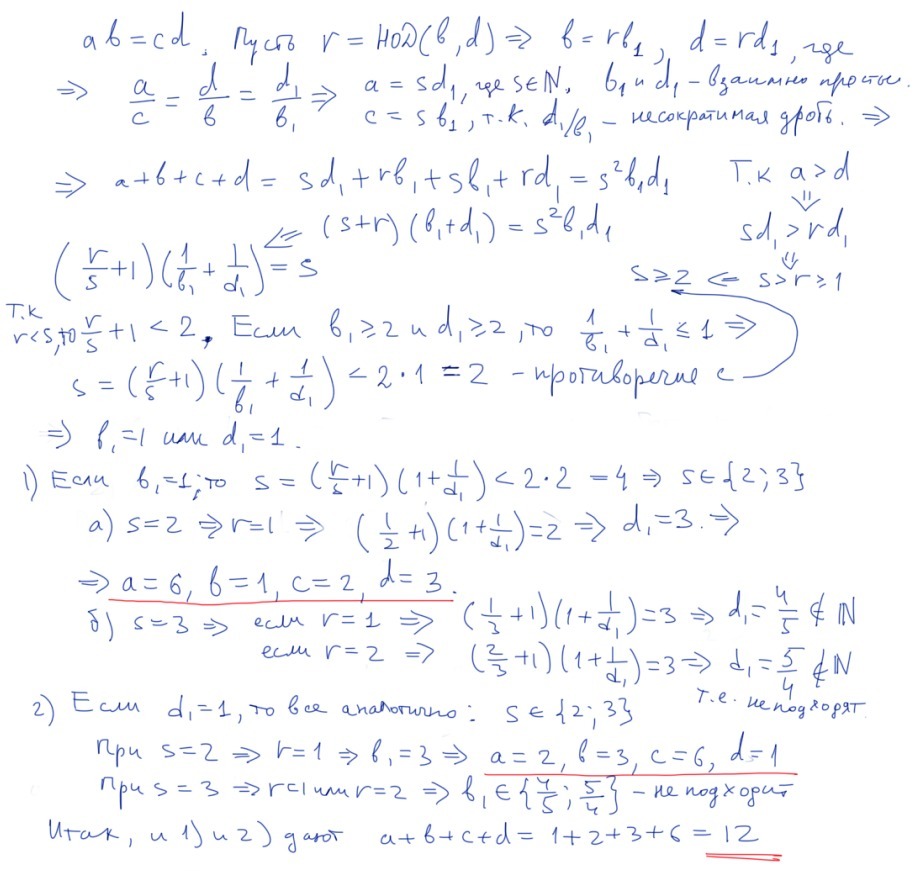 ab=cd. Пусть r = НОД(b,d) ⇒ b=rb₁, d=rd₁, где
⇒ a/c = d/b = d₁/b₁ ⇒ a = sd₁, где s∈N. b₁ и d₁ – взаимно простые.
c = sb₁, т.к. d₁/b₁ – несократимая дробь. ⇒
⇒ a+b+c+d = sd₁+rb₁+sb₁+rd₁ = s²b₁d₁ Т.к a>d
⇐ (s+r)(b₁+d₁) = s²b₁d₁ ⇓ sd₁>rd₁
(r/s+1)(1/b₁+1/d₁) = s ⇓ s≥2 ⇐ s>r≥1
Т.к r<s, то r/s+1 < 2. Если b₁≥2 и d₁≥2, то 1/b₁+1/d₁ ≤ 1 ⇒
s = (r/s+1)(1/b₁+1/d₁) < 2·1 = 2 – противоречие с
⇒ b₁=1 или d₁=1.
1) Если b₁=1, то s = (r/s+1)(1+1/d₁) < 2·2 = 4 ⇒ s∈{2;3}
а) s=2 ⇒ r=1 ⇒ (1/2+1)(1+1/d₁)=2 ⇒ d₁=3. ⇒
⇒ a=6, b=1, c=2, d=3.
б) s=3 ⇒ если r=1 ⇒ (1/3+1)(1+1/d₁)=3 ⇒ d₁=4/5 ∉ N
если r=2 ⇒ (2/3+1)(1+1/d₁)=3 ⇒ d₁=5/4 ∉ N
т.е. не подходят.
2) Если d₁=1, то все аналогично: s∈{2;3}
При s=2 ⇒ r=1 ⇒ b₁=3 ⇒ a=2, b=3, c=6, d=1
При s=3 ⇒ r=1 или r=2 ⇒ b₁∈{4/5; 5/4} – не подходит
Итак, и 1) и 2) дают a+b+c+d = 1+2+3+6 = 12